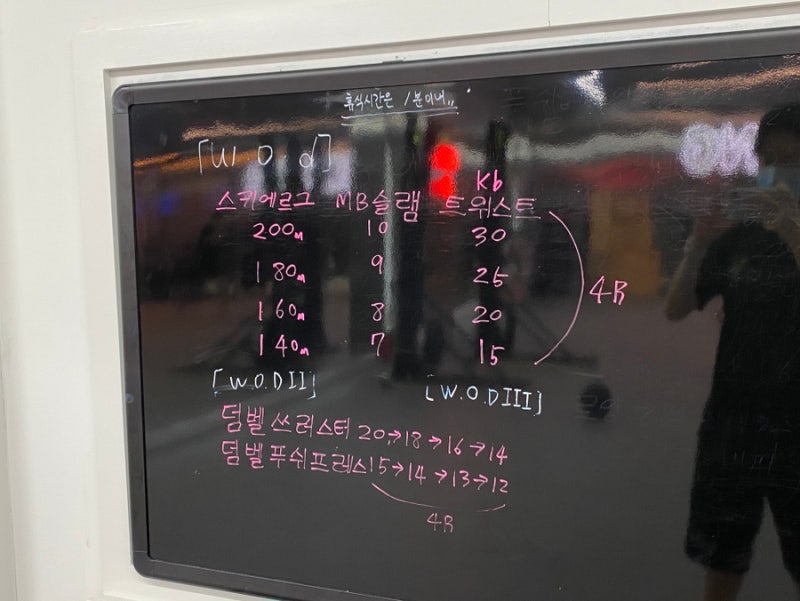 휴식시간은 1분이내..
[W.O.d]
Kb
스키에르그 MB슬램 트위스트
200m 10 30
180m 9 25
160m 8 20
140m 7 15
4R
[W.O.DII] [W.O.DIII]
덤벨 쓰러스터 20→18→16→14
덤벨 푸쉬프레스 15→14→13→12
4R